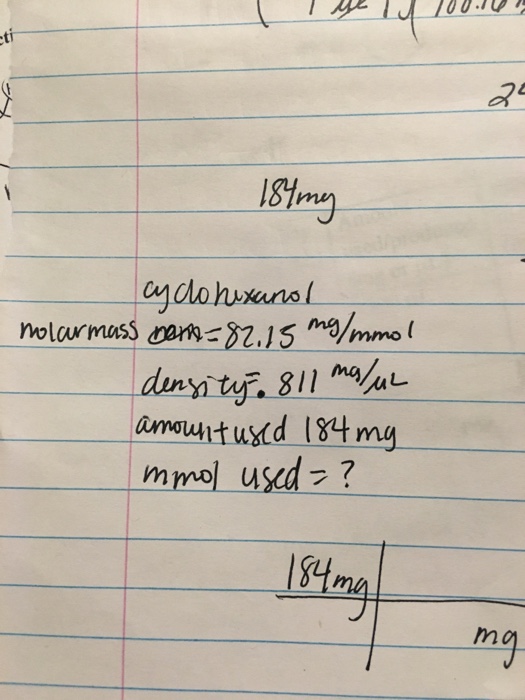 100.16
184mg
cyclohexanol
molarmass = 82.15 mg/mmol
density = .811 mg/uL
amount used 184 mg
mmol used = ?
184mg
mg